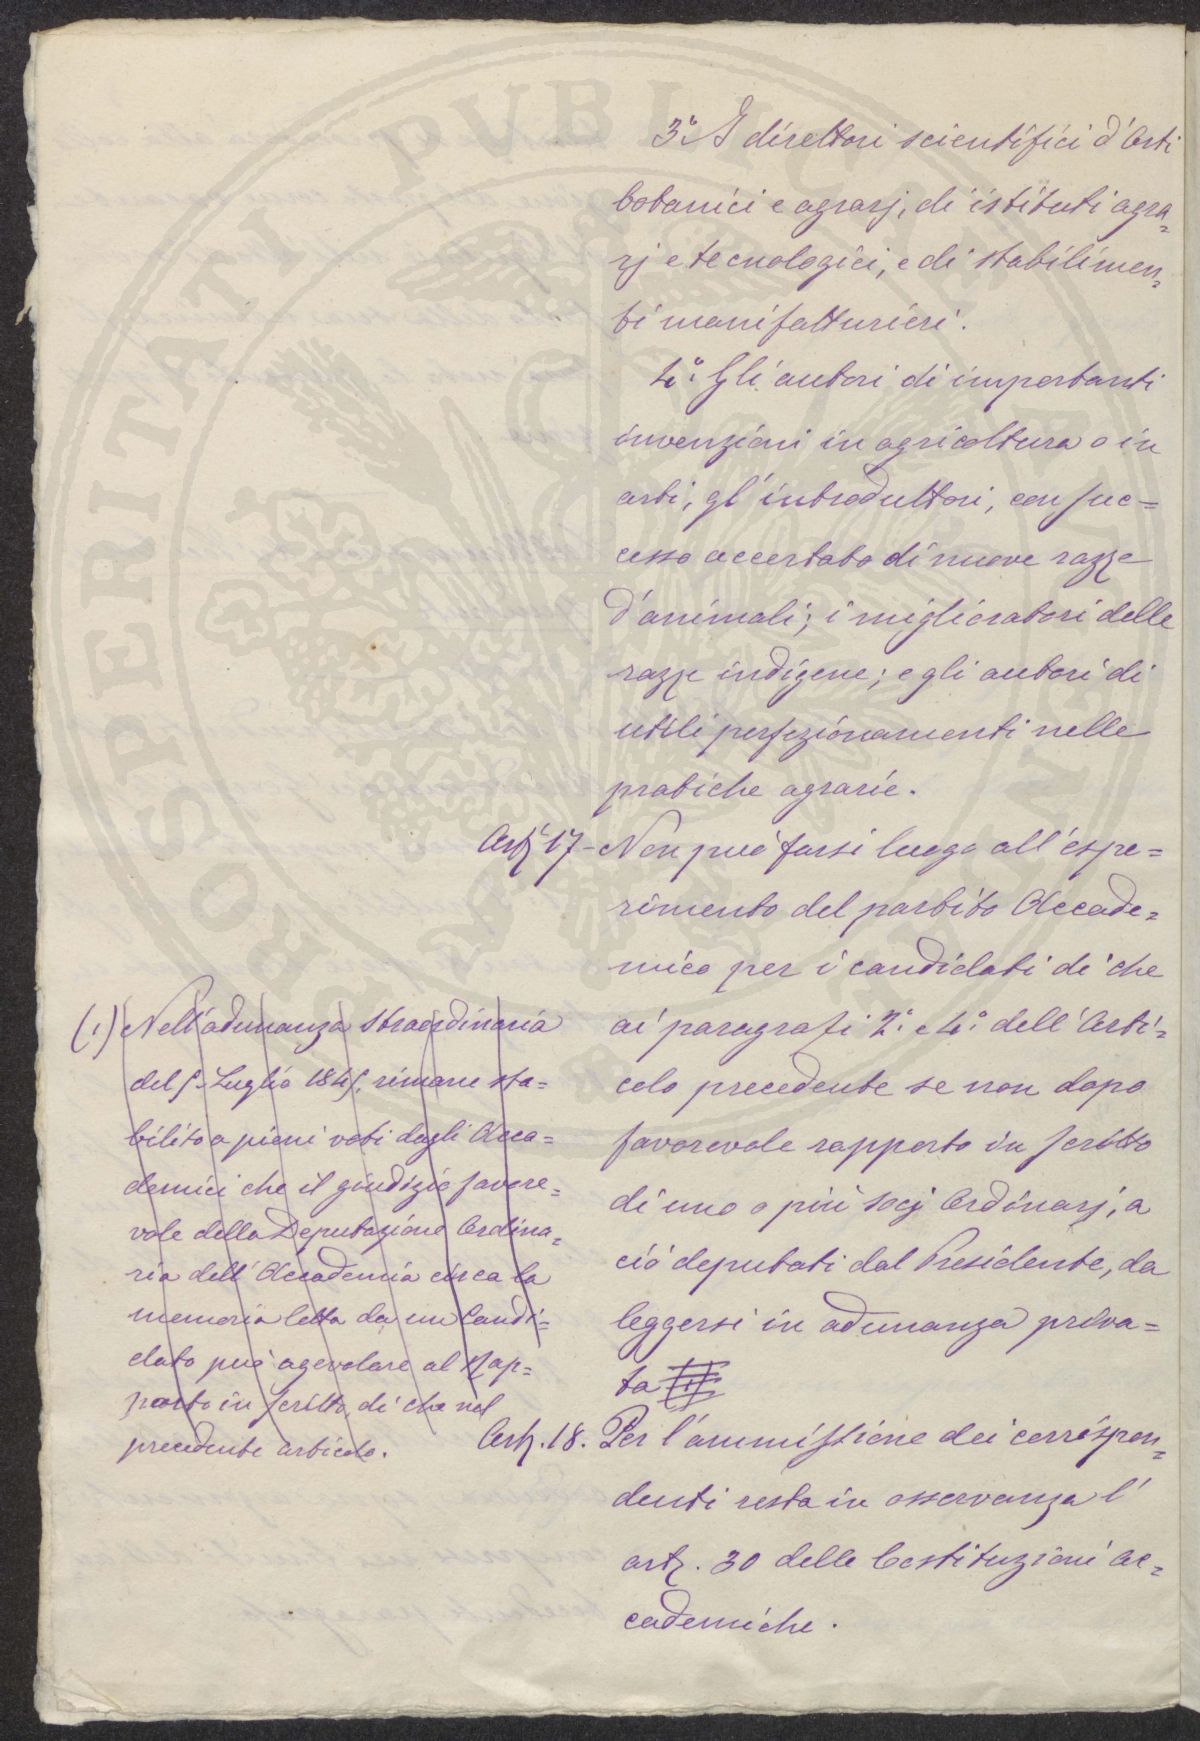 3.° I direttori scientifici d'Orti
botanici e agrarj, di istituti agra=
rj e tecnologici, e di stabilimen=
ti manifatturieri.
4.° Gli autori di importanti
invenzioni in agricoltura o in
arti, gl'introduttori, con suc=
cesso accertato di nuove razze
d'animali; i miglioratori delle
razze indigene; e gli autori di
utili perfezionamenti nelle
pratiche agrarie.
Art.° 17 - Non può farsi luogo all'espe=
rimento del partito Accade=
mico per i candidati di che
ai paragrafi 2.° e 4.° dell'Arti=
colo precedente se non dopo
favorevole rapporto in scritto
di uno o più socj Ordinarj, a
ciò deputati dal Presidente, da
leggersi in adunanza priva=
ta (1)
Art. 18. Per l'ammissione dei corrispon=
denti resta in osservanza l'
art. 30 delle Costituzioni Ac=
cademiche.
(1) Nell'adunanza straordinaria
del 5 Luglio 1845, rimane sta=
bilito a pieni voti dagli Acca=
demici che il giudizio favore=
vole della Deputazione Ordina=
ria dell'Accademia circa la
memoria letta da un Candi=
dato può agevolare al Rap=
porto in scritto di che nel
precedente articolo.
PROSPERITATI PVBLICAE